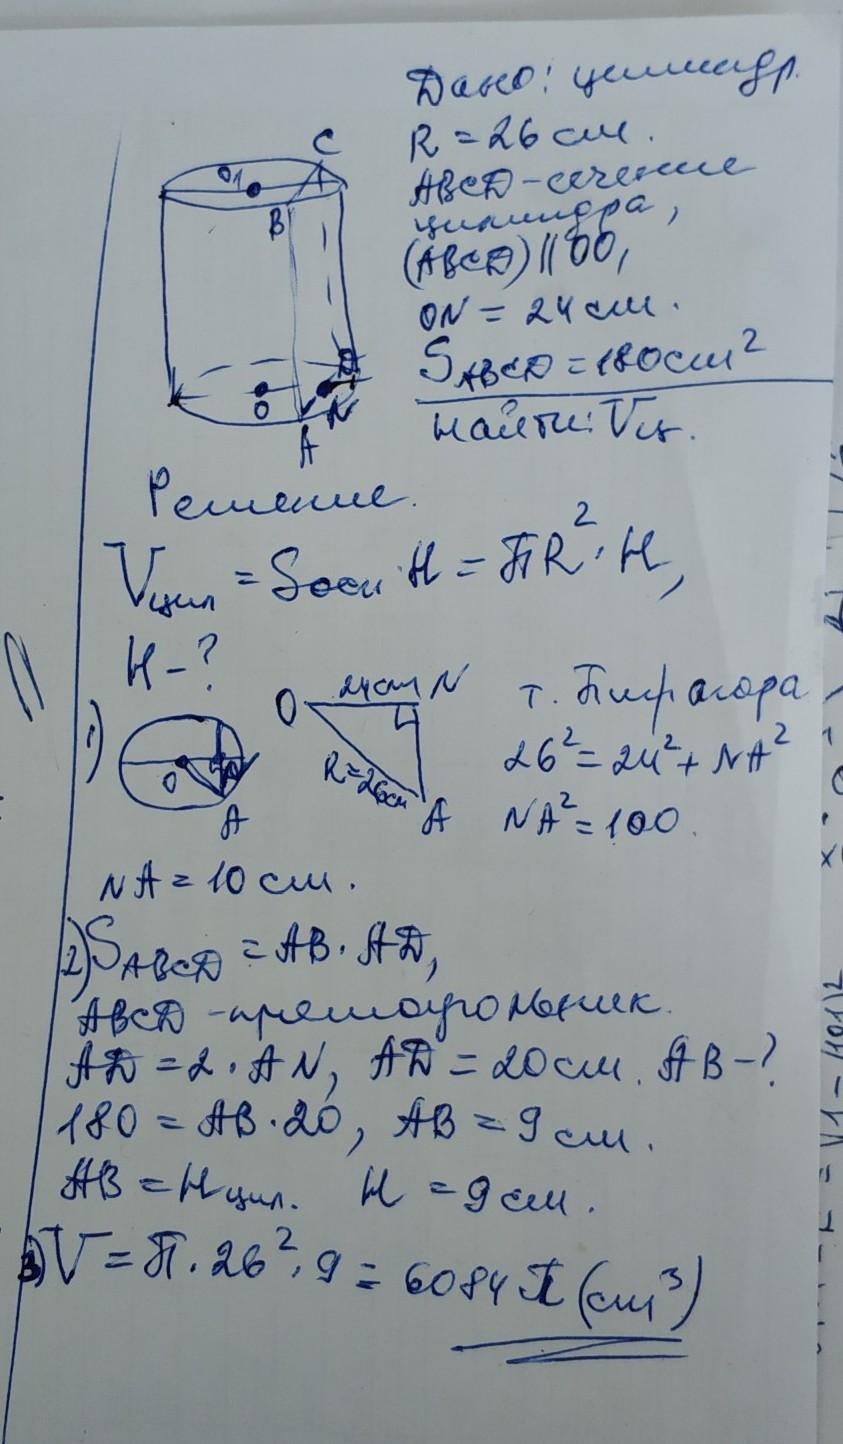 Дано: цилиндр.
R = 26 см.
ABCD - сечение
цилиндра,
(ABCD) || OO₁
ON = 24 см.
S ABCD = 180 см²
Найти: Vц.
C
O₁
B
D
O
N
A
Решение.
Vцил = Sосн · H = πR² · H,
H - ?
1)
O
A
O 24 см N
R = 26 см
A
т. Пифагора
26² = 24² + NA²
NA² = 100.
NA = 10 см.
2) S ABCD = AB · AD,
ABCD - прямоугольник.
AD = 2 · AN, AD = 20 см. AB - ?
180 = AB · 20, AB = 9 см.
AB = Hцил. H = 9 см.
3) V = π · 26² · 9 = 6084 π (см³)